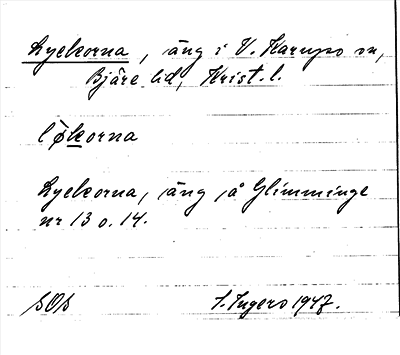 Lyckorna, äng i V. Karups sn,
Bjäre hd, Krist. l.
l ø̀korna
Lyckorna, äng på Glimminge
nr 13 o. 14.
SOS I. Ingers 1947.